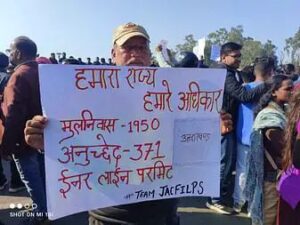 हमारा राज्य
हमारे अधिकार
मूलनिवास - 1950
अनुच्छेद - 371
ईनर लाईन परमिट
उत्तराखण्ड
TEAM JACFILPS
SHOT ON MI